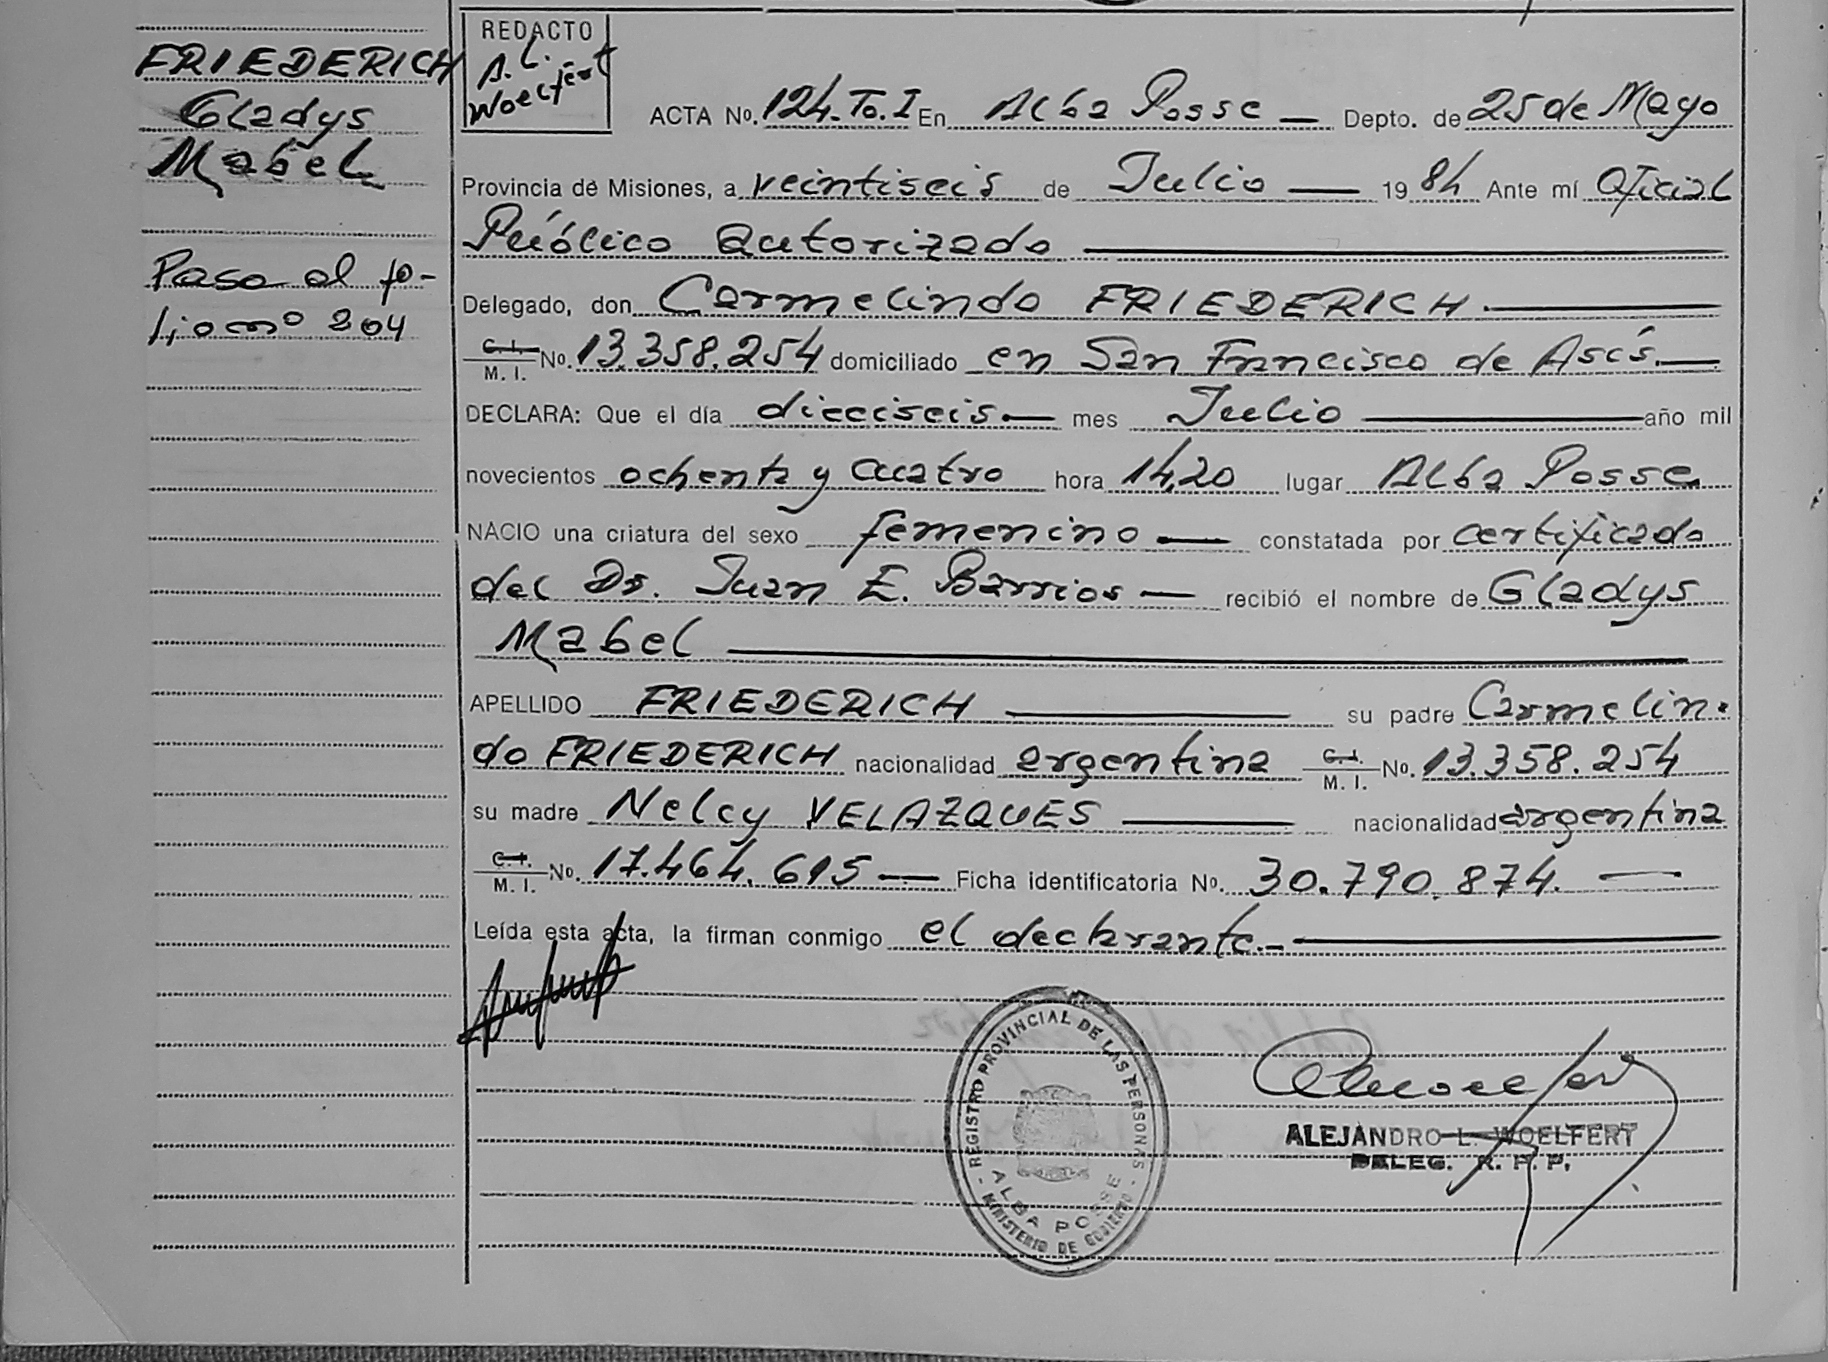 FRIEDERICH
Gladys
Mabel
Pasa al fo-
lio nº 204
REDACTO
A. L.
Woelfert
ACTA No. 124. To. I En Alba Posse Depto. de 25 de Mayo
Provincia de Misiones, a veintiseis de Julio 19 84 Ante mí Oficial
Público Autorizado
Delegado, don Carmelindo FRIEDERICH
C. I. M. I. No. 13.358.254 domiciliado en San Francisco de Asís.
DECLARA: Que el día dieciseis mes Julio año mil
novecientos ochenta y cuatro hora 14,20 lugar Alba Posse
NACIO una criatura del sexo femenino constatada por certificado
del Dr. Juan E. Barrios recibió el nombre de Gladys
Mabel
APELLIDO FRIEDERICH su padre Carmelin-
do FRIEDERICH nacionalidad argentina C. I. M. I. No. 13.358.254
su madre Nelcy VELAZQUES nacionalidad argentina
C. I. M. I. No. 17.464.615 Ficha identificatoria No. 30.790.874.
Leída esta acta, la firman conmigo el declarante.
REGISTRO PROVINCIAL DE LAS PERSONAS
ALBA POSSE
MINISTERIO DE GOBIERNO
ALEJANDRO L. WOELFERT
DELEG. R. P. P.